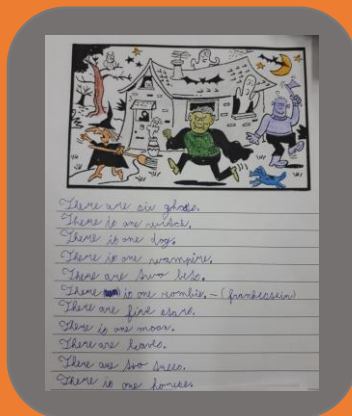 There are six ghosts.
There is one witch.
There is one dog.
There is one vampire.
There are two bets.
There is one zombie. - (frankenstein)
There are five stars.
There is one moon.
There are leaves.
There are two trees.
There is one house.